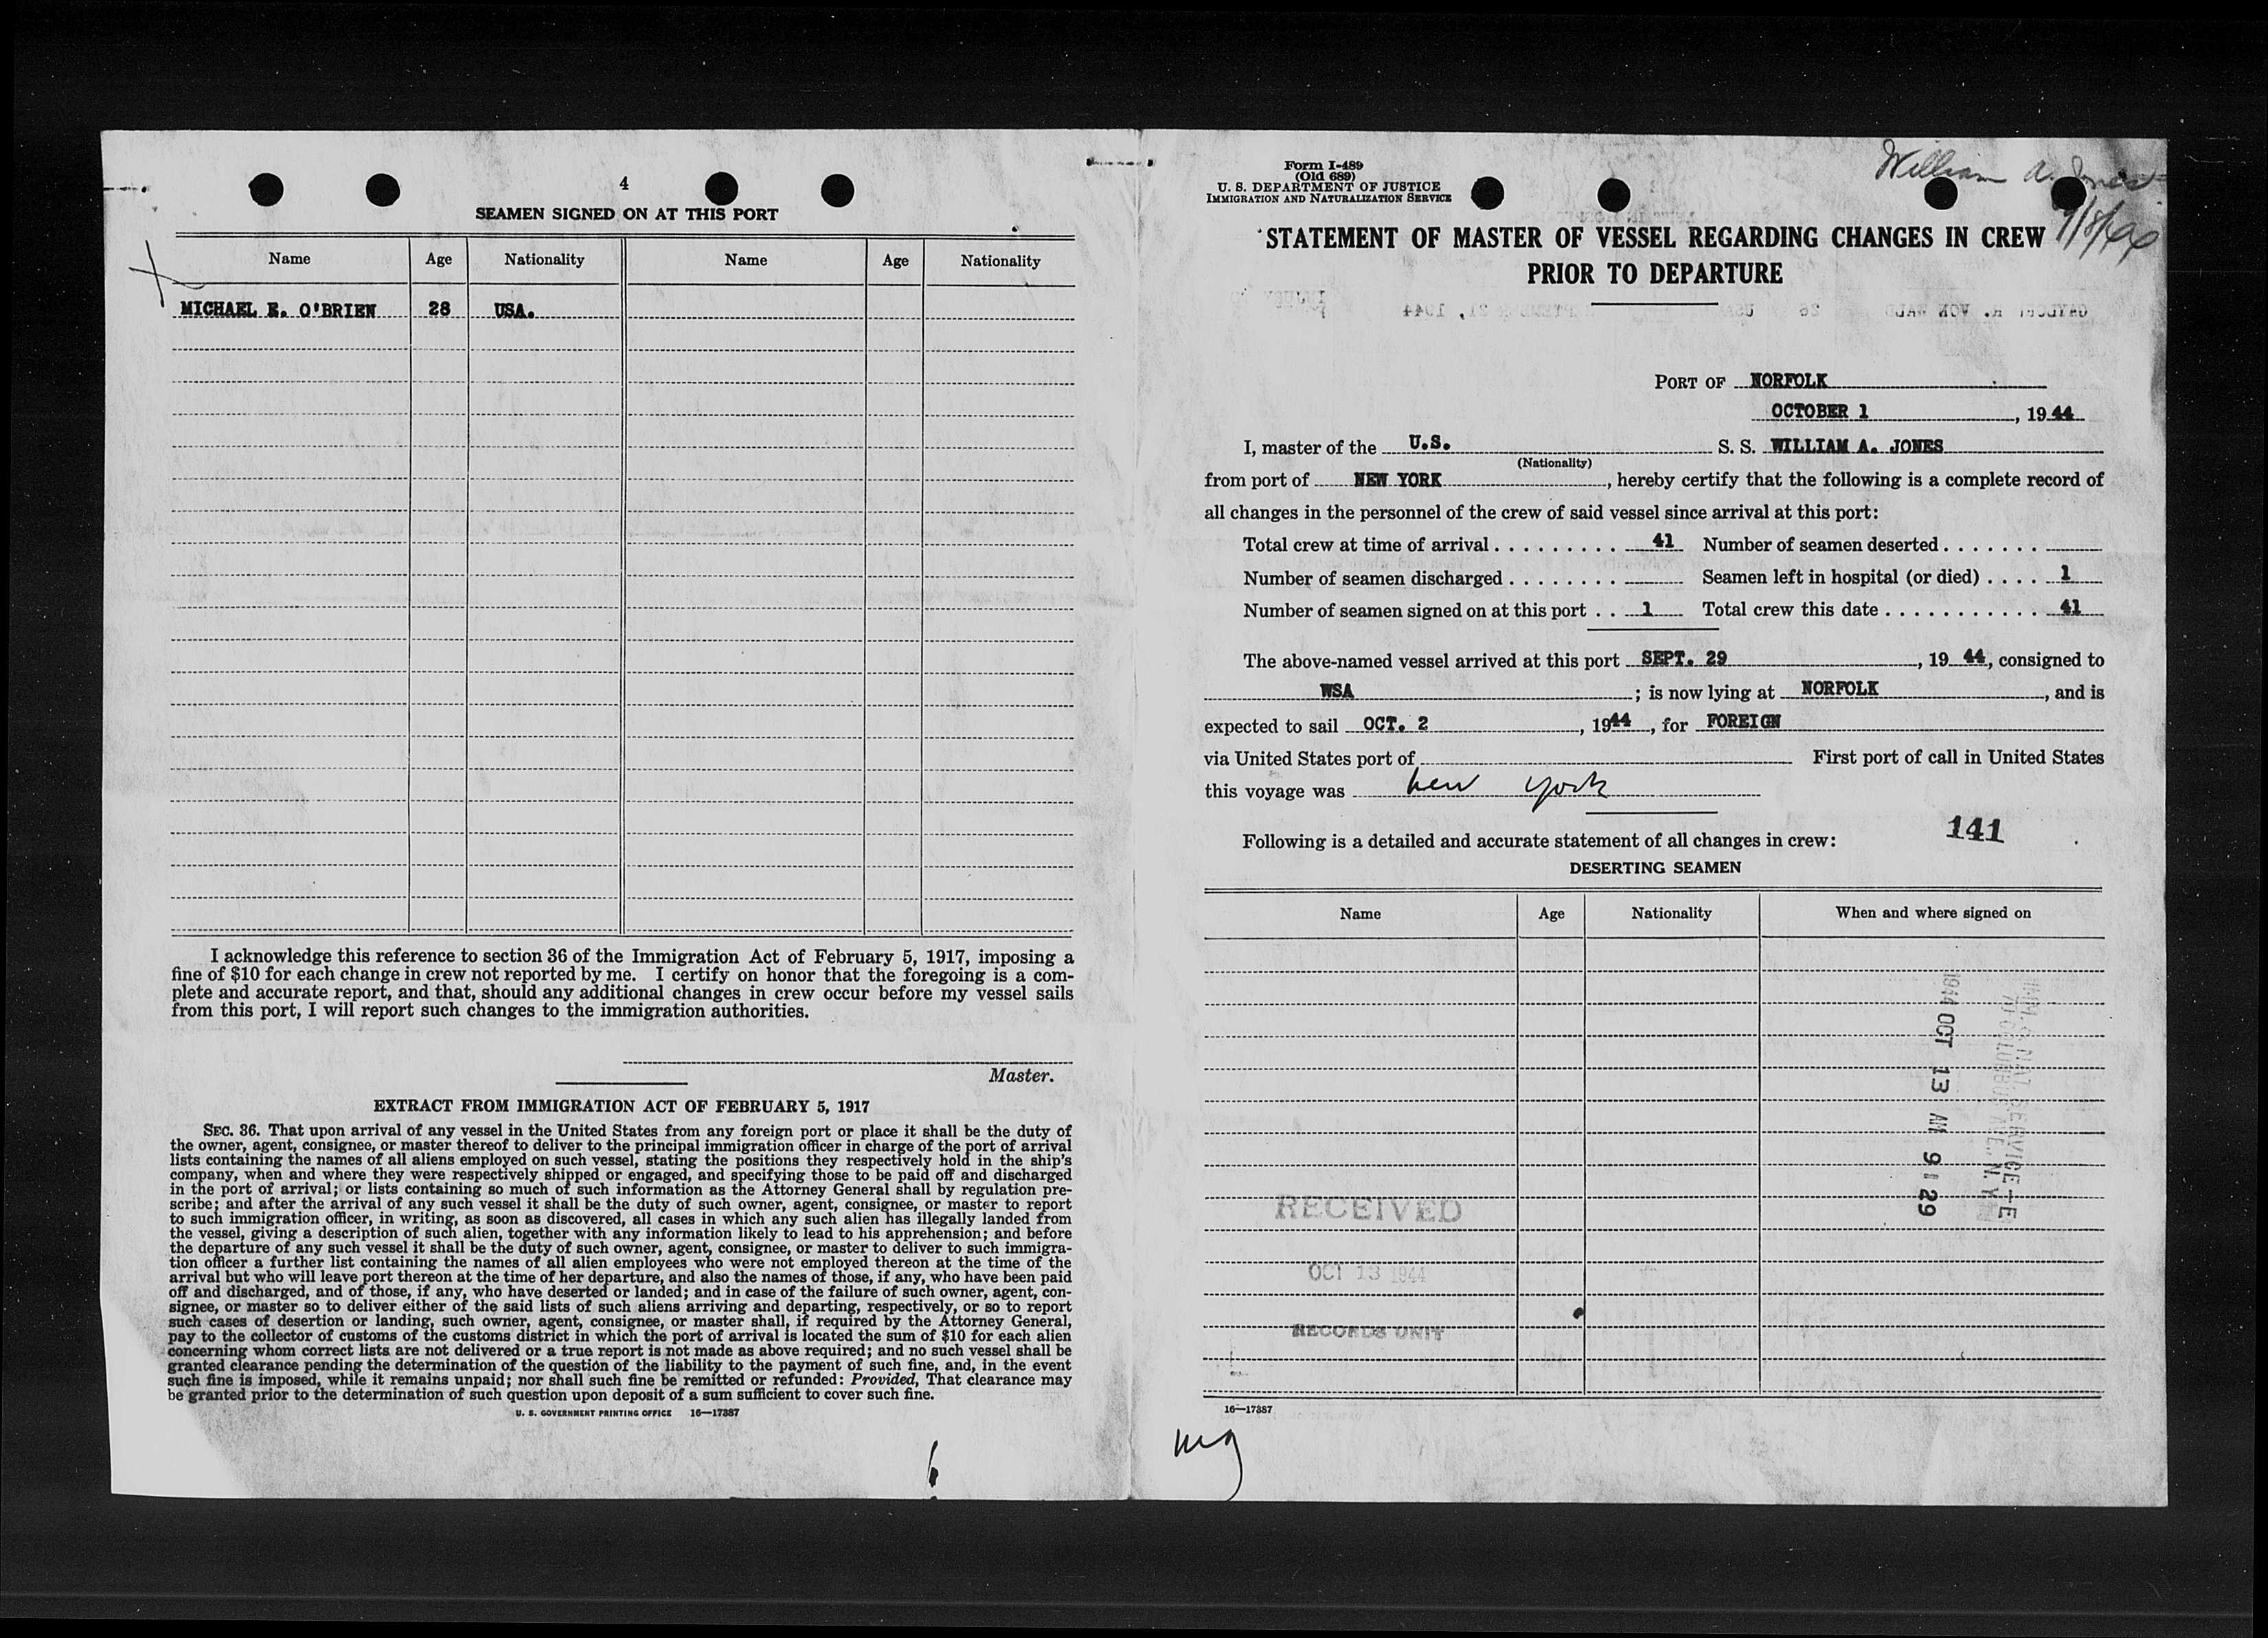 4
SEAMEN SIGNED ON AT THIS PORT
Name Age Nationality Name Age Nationality
MICHAEL E. O'BRIEN 28 USA.
I acknowledge this reference to section 36 of the Immigration Act of February 5, 1917, imposing a
fine of $10 for each change in crew not reported by me. I certify on honor that the foregoing is a com-
plete and accurate report, and that, should any additional changes in crew occur before my vessel sails
from this port, I will report such changes to the immigration authorities.
Master.
EXTRACT FROM IMMIGRATION ACT OF FEBRUARY 5, 1917
SEC. 36. That upon arrival of any vessel in the United States from any foreign port or place it shall be the duty of
the owner, agent, consignee, or master thereof to deliver to the principal immigration officer in charge of the port of arrival
lists containing the names of all aliens employed on such vessel, stating the positions they respectively hold in the ship's
company, when and where they were respectively shipped or engaged, and specifying those to be paid off and discharged
in the port of arrival; or lists containing so much of such information as the Attorney General shall by regulation pre-
scribe; and after the arrival of any such vessel it shall be the duty of such owner, agent, consignee, or master to report
to such immigration officer, in writing, as soon as discovered, all cases in which any such alien has illegally landed from
the vessel, giving a description of such alien, together with any information likely to lead to his apprehension; and before
the departure of any such vessel it shall be the duty of such owner, agent, consignee, or master to deliver to such immigra-
tion officer a further list containing the names of all alien employees who were not employed thereon at the time of the
arrival but who will leave port thereon at the time of her departure, and also the names of those, if any, who have been paid
off and discharged, and of those, if any, who have deserted or landed; and in case of the failure of such owner, agent, con-
signee, or master so to deliver either of the said lists of such aliens arriving and departing, respectively, or so to report
such cases of desertion or landing, such owner, agent, consignee, or master shall, if required by the Attorney General,
pay to the collector of customs of the customs district in which the port of arrival is located the sum of $10 for each alien
concerning whom correct lists are not delivered or a true report is not made as above required; and no such vessel shall be
granted clearance pending the determination of the question of the liability to the payment of such fine, and, in the event
such fine is imposed, while it remains unpaid; nor shall such fine be remitted or refunded: Provided, That clearance may
be granted prior to the determination of such question upon deposit of a sum sufficient to cover such fine.
U. S. GOVERNMENT PRINTING OFFICE 16—17387
Form I-489
(Old 689)
U. S. DEPARTMENT OF JUSTICE
IMMIGRATION AND NATURALIZATION SERVICE
William A. Jones
STATEMENT OF MASTER OF VESSEL REGARDING CHANGES IN CREW
PRIOR TO DEPARTURE
PORT OF NORFOLK
OCTOBER 1, 1944
I, master of the U.S. S. S. WILLIAM A. JONES
(Nationality)
from port of NEW YORK, hereby certify that the following is a complete record of
all changes in the personnel of the crew of said vessel since arrival at this port:
Total crew at time of arrival . . . . . . . . . 41 Number of seamen deserted . . . . . . .
Number of seamen discharged . . . . . . . . Seamen left in hospital (or died) . . . . 1
Number of seamen signed on at this port . . 1 Total crew this date . . . . . . . . . . . . 41
The above-named vessel arrived at this port SEPT. 29, 1944, consigned to
WSA; is now lying at NORFOLK, and is
expected to sail OCT. 2, 1944, for FOREIGN
via United States port of First port of call in United States
this voyage was new york
Following is a detailed and accurate statement of all changes in crew: 141
DESERTING SEAMEN
Name Age Nationality When and where signed on
1944 OCT 13 AM 9 29
RECEIVED
OCT 13 1944
RECORDS UNIT
16—17387
mg